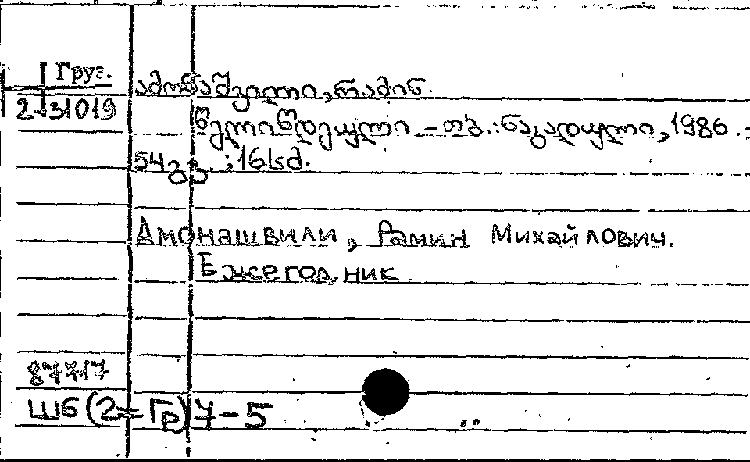 Груз.
2-31019
ამონაშვილი, რამინ.
წელიწდეული. – თბ.: ნაკადული, 1986.
54გვ.; 16სმ.
Амонашвили, Рамин Михайлович.
Ежегодник
87717
Шб(2=Гр)7-5